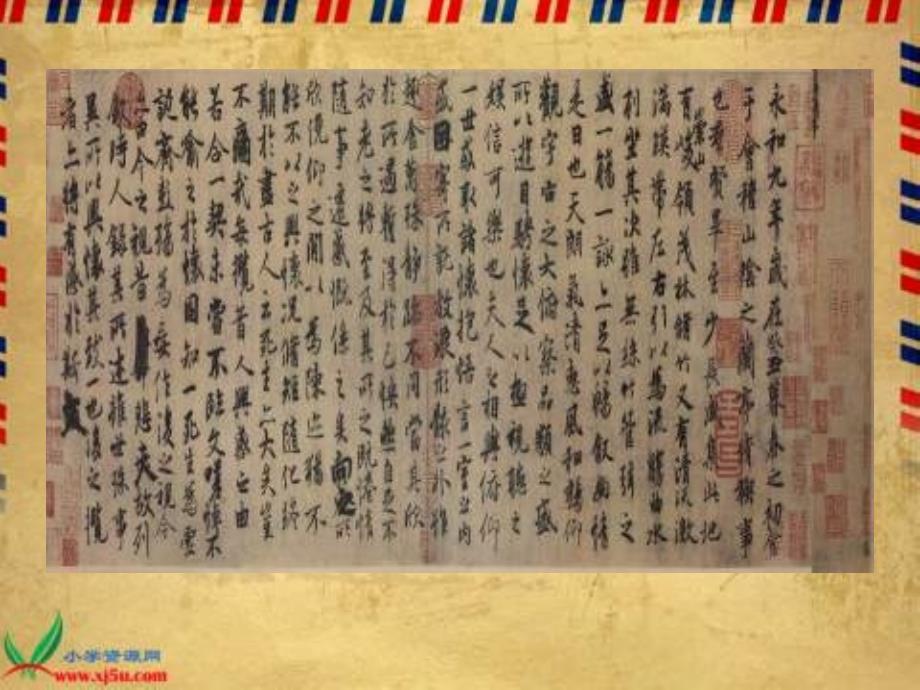 永和九年歲在癸丑暮春之初會
于會稽山陰之蘭亭脩禊事
也群賢畢至少長咸集此地
有崇山峻領茂林脩竹又有清流激
湍暎帶左右引以為流觴曲水
列坐其次雖無絲竹管弦之
盛一觴一詠亦足以暢敘幽情
是日也天朗氣清惠風和暢仰
觀宇宙之大俯察品類之盛
所以遊目騁懷足以極視聽之
娛信可樂也夫人之相與俯仰
一世或取諸懷抱悟言一室之內
或因寄所託放浪形骸之外雖
趣舍萬殊靜躁不同當其欣
於所遇蹔得於己怏然自足不
知老之將至及其所之既惓情
隨事遷感慨係之矣向之所
欣俛仰之閒以為陳迹猶不
能不以之興懷況脩短隨化終
期於盡古人云死生亦大矣豈
不痛哉每攬昔人興感之由
若合一契未嘗不臨文嗟悼不
能喻之於懷固知一死生為虛
誕齊彭殤為妄作後之視今
亦由今之視昔悲夫故列
敘時人錄其所述雖世殊事
異所以興懷其致一也後之攬
者亦將有感於斯文
小学资源网
www.xj5u.com